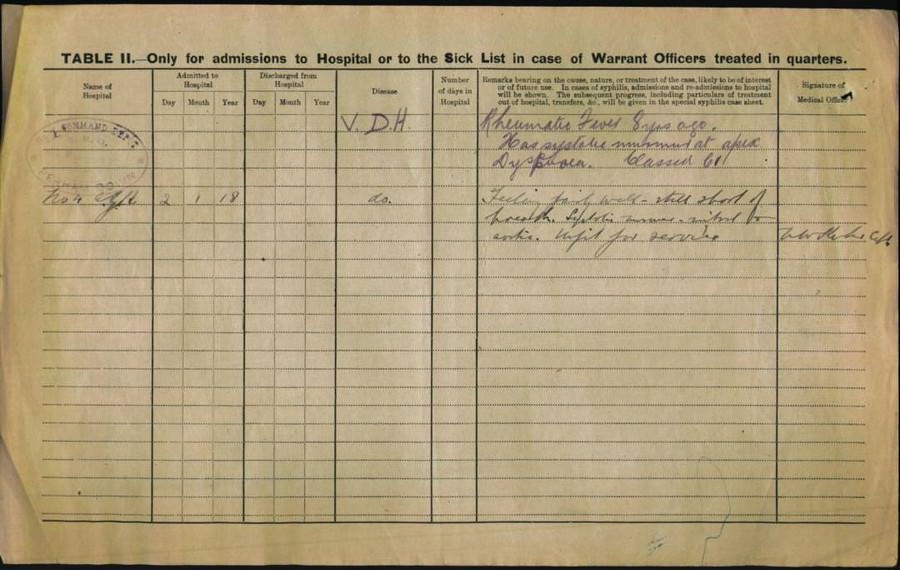 TABLE II.—Only for admissions to Hospital or to the Sick List in case of Warrant Officers treated in quarters.
Name of Hospital
Admitted to Hospital
Day Month Year
Discharged from Hospital
Day Month Year
Disease
Number of days in Hospital
Remarks bearing on the cause, nature, or treatment of the case, likely to be of interest
or of future use. In cases of syphilis, admissions and re-admissions to hospital
will be shown. The subsequent progress, including particulars of treatment
out of hospital, transfers, &c., will be given in the special syphilis case sheet.
Signature of Medical Officer
COMMAND DEPOT
V. D. H.
Rheumatic Fever 6 yrs ago.
Has systolic murmur at apex
Dyspnoea. Classed C1
2 1 18
do.
Feeling fairly well - still short of
breath. Systolic murmur - mitral
aortic. Unfit for service